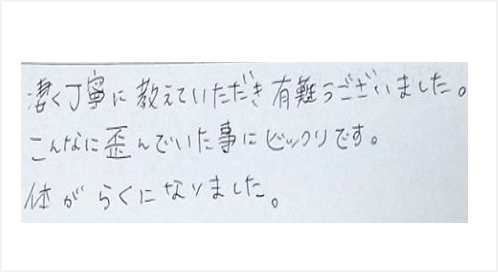 凄く丁寧に教えていただき有難うございました。
こんなに歪んでいた事にビックリです。
体がらくになりました。